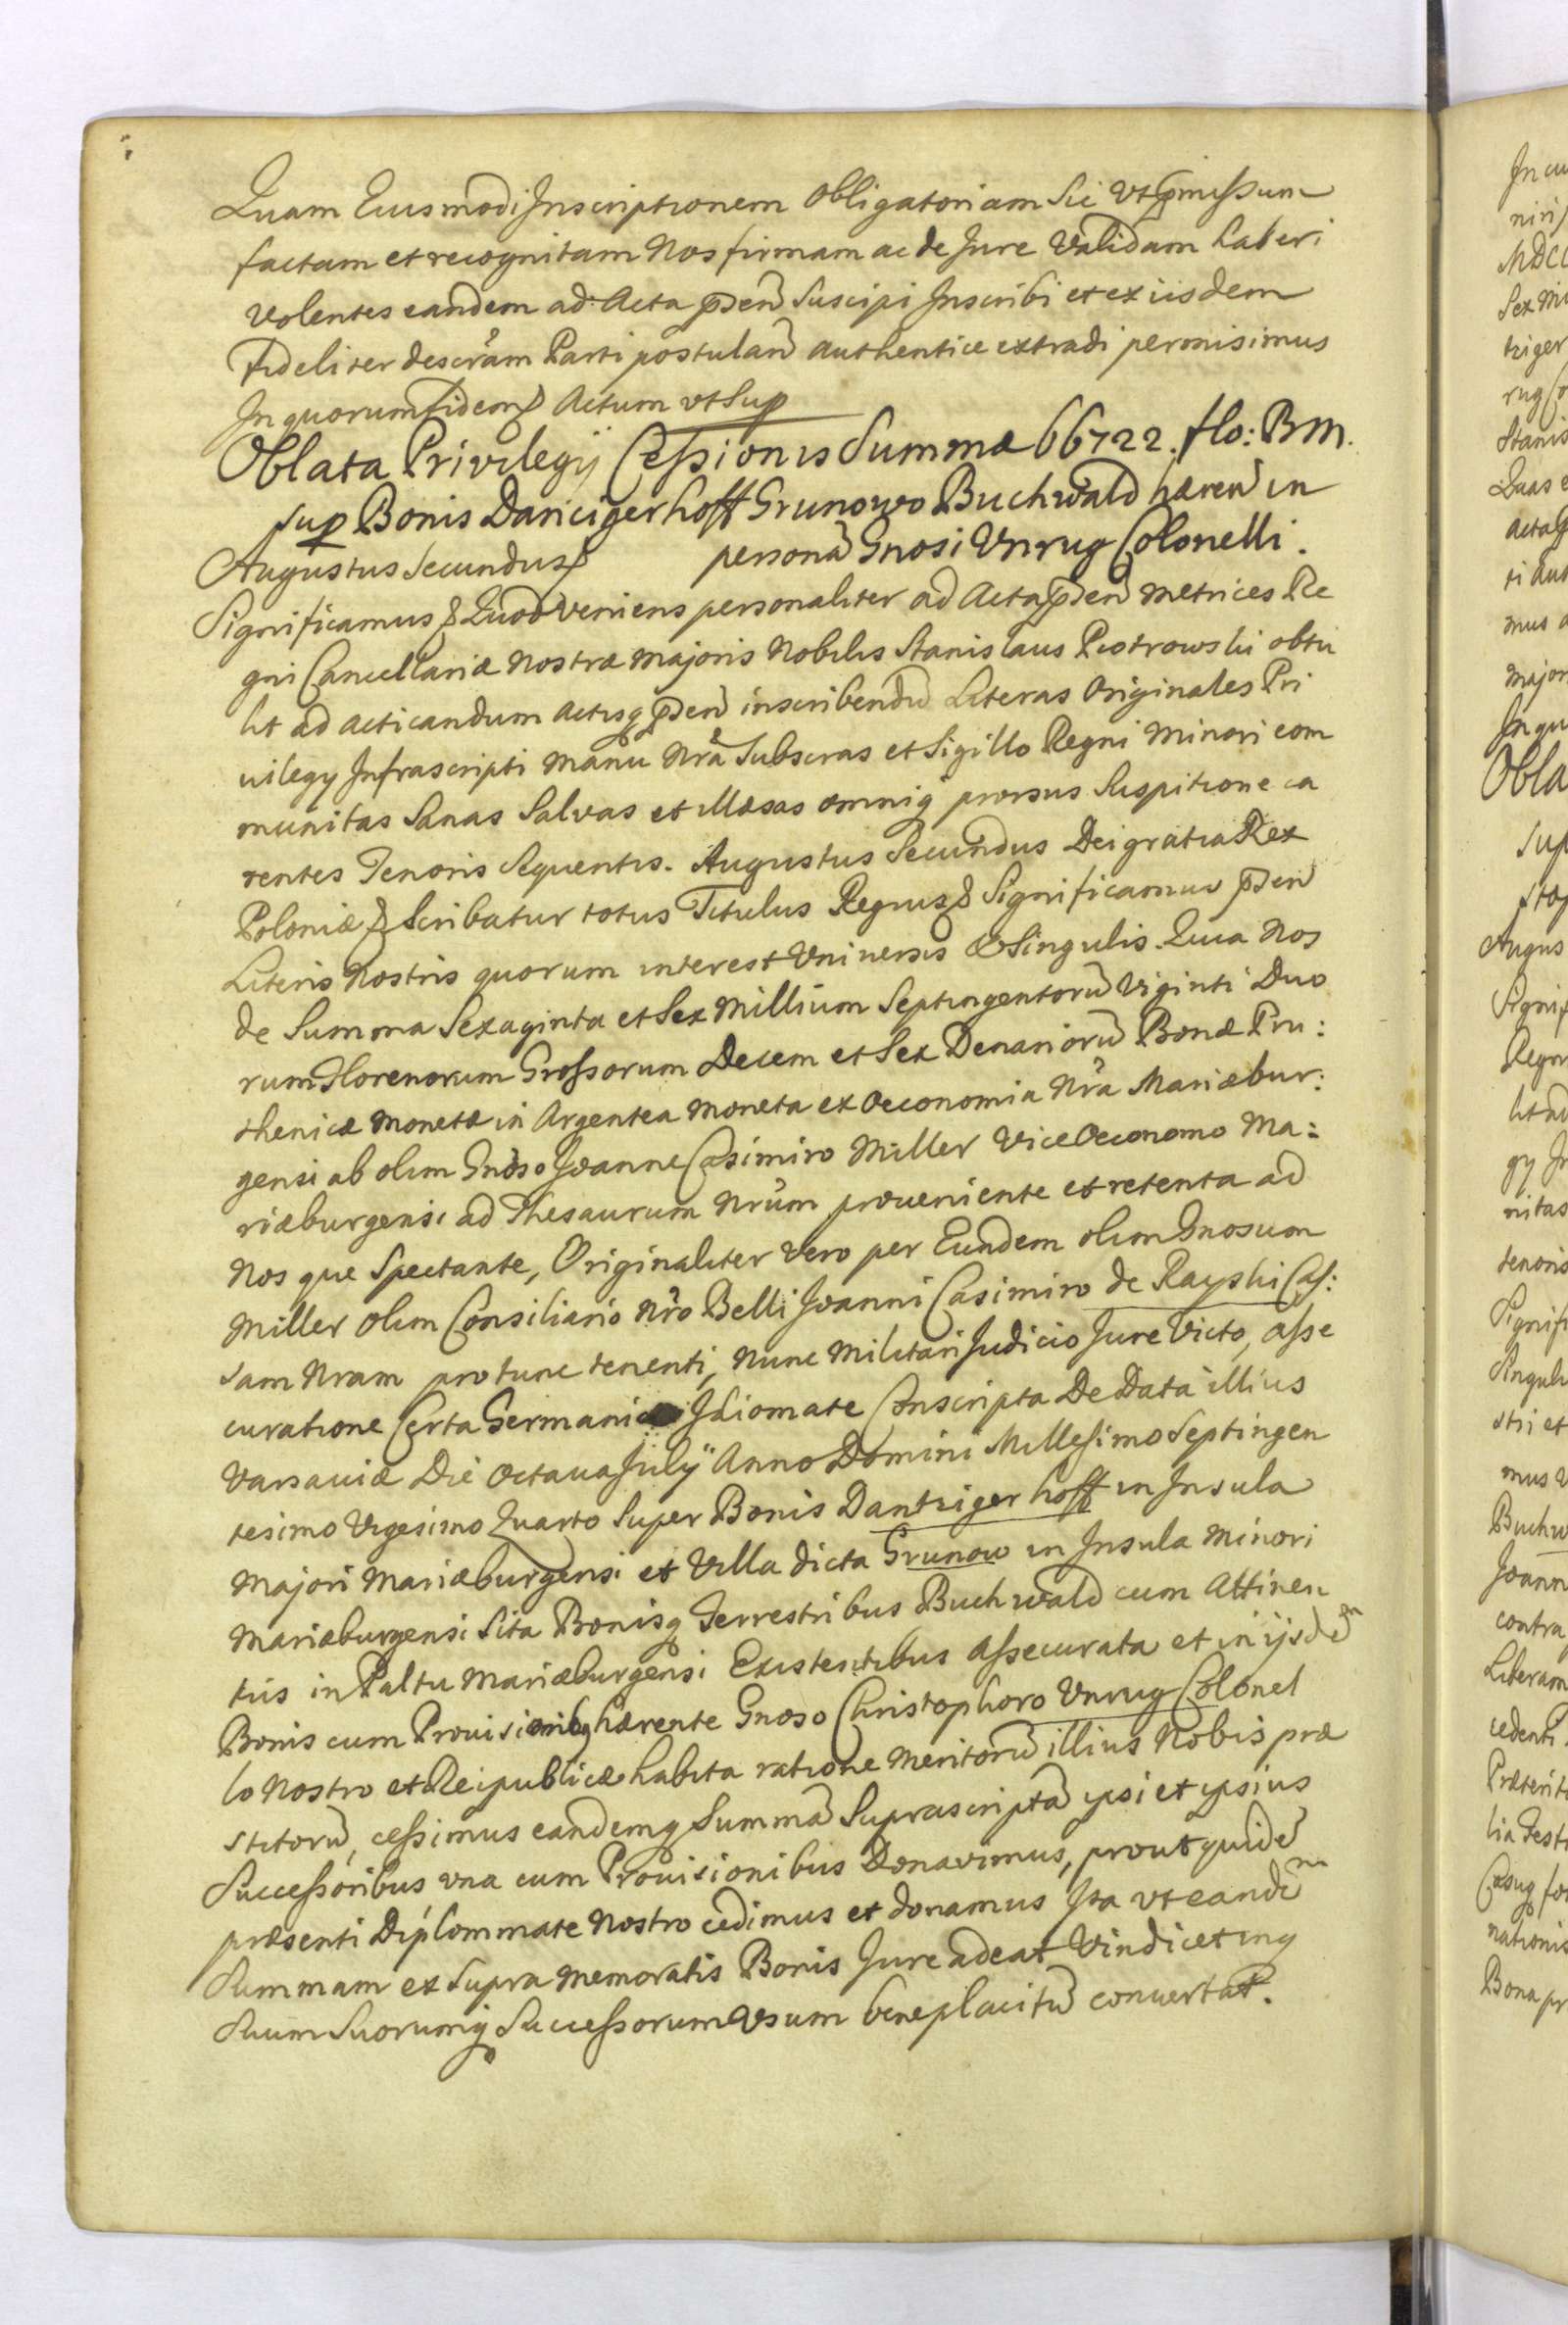 Quam Eiusmodi Inscriptionem Obligatoriam Sic Vt p̃missum
factam et recognitam Nos firmam ac de Jure Validam haberi
Volentes eandem ad Acta p̃sen Suscipi Inscribi et ex iisdem
fideliter descrãm Parti postulan authentice extradi permisimus
In quorum fidem & Actum vt Sup
Oblata Privilegÿ Cessionis Summæ 66722. flo: B M.
sup Bonis Dancigerhoff Grunowo Buchwald hæren in
personã Gnosi Vnrug Colonelli.
Augustus Secundus &
Significamus & Quod Veniens personaliter ad Acta p̃sen Metrices Re
gni Cancellariæ Nostræ Majoris Nobilis Stanislaus Piotrowski obtu
lit ad acticandum Actisq p̃sen inscribendũ Literas Originales Pri
uilegy Infrascripti Manu Nrã Subscras et Sigillo Regni Minori com
munitas Sanas Salvas et illæsas omniq prorsus Suspitione ca
rentes Tenoris Sequentis. Augustus Secundus Dei gratia Rex
Poloniæ & Scribatur totus Titulus Regius & Significamus p̃sen
Literis Nostris quorum interest Vniversis & Singulis. Quia Nos
de Summa Sexaginta et Sex Millium Septingentorũ Viginti Duo
rum Florenorum Grossorum Decem et Sex Denariorũ Bonæ Pru:
thenicæ Monetæ in Argentea Moneta ex Oeconomia Nrã Mariæbur:
gensi ab olim Gnoso Joanne Casimiro Miller Vice Oeconomo Ma:
riæburgensi ad Thesaurum Nrũm proueniente et retenta ad
Nos que Spectante, Originaliter Vero per Eundem olim Gnosum
Miller olim Consiliario Nrõ Belli Joanni Casimiro de Rayski Cas:
sam Nram pro tunc tenenti, Nunc Militari Judicio Jure Victo, asse
curatione Certa Germanico Idiomate Conscripta De Data illius
Varsaviæ Die Octaua Julÿ Anno Domini Millesimo Septingen
tesimo Vigesimo Quarto Super Bonis Dantzigerhoff in Insula
Majori Mariæburgensi et Villa dicta Grunow in Insula Minori
Mariæburgensi Sita Bonisq Terrestribus Buchwald cum Attinen
tiis in Paltu Mariæburgensi Existentibus assecurata et in ijsdem
Bonis cum Prouisionibq hærente Gnoso Christophoro Vnrug Colonel
lo Nostro et Reipublicæ habita ratione Meritorũ illius Nobis præ
stitorũ, cessimus eandemq Summã Suprascriptã ipsi et ipsius
Successoribus vna cum Prouisionibus Donavimus, prout quidẽ
præsenti Diplommate Nostro cedimus et donamus Ita vt eandẽm
Summam ex Supra Memoratis Bonis Jure adeat Vindicet inq
Suum Suorumq Successorum Vsum beneplacitũ conuertat.